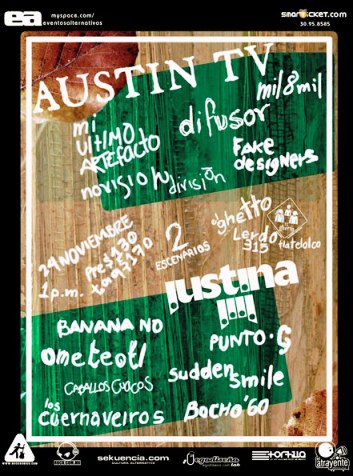 ea
myspace.com/
eventosalternativos
smarticket.com
30.95.8585
AUSTIN TV
mil8mil
mi
ultimo
artefacto
difusor
Fake
designers
división
24 NOVIEMBRE
1 p.m.
2
ESCENARIOS
ghetto
Lerdo
315
tlatelolco
justina
BANANA NO
PUNTO·G
ometeotl
CABALLOS CHUCOS
sudden
smile
los
cuernaveiros
Bocho'60
sekuencia.com
CULTURA ALTERNATIVA
atrayente